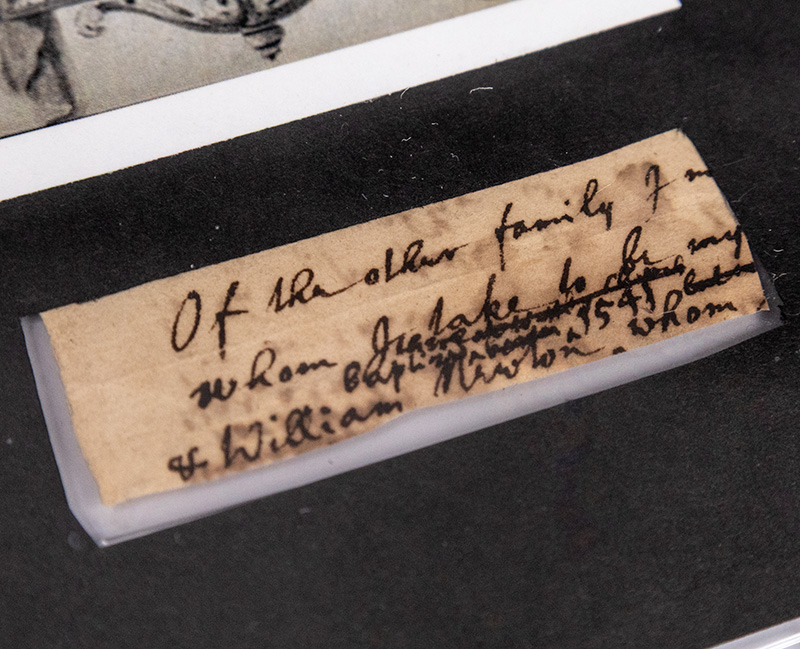 Of the other family I m
whom I take to be my
1541 but
& William Newton whom